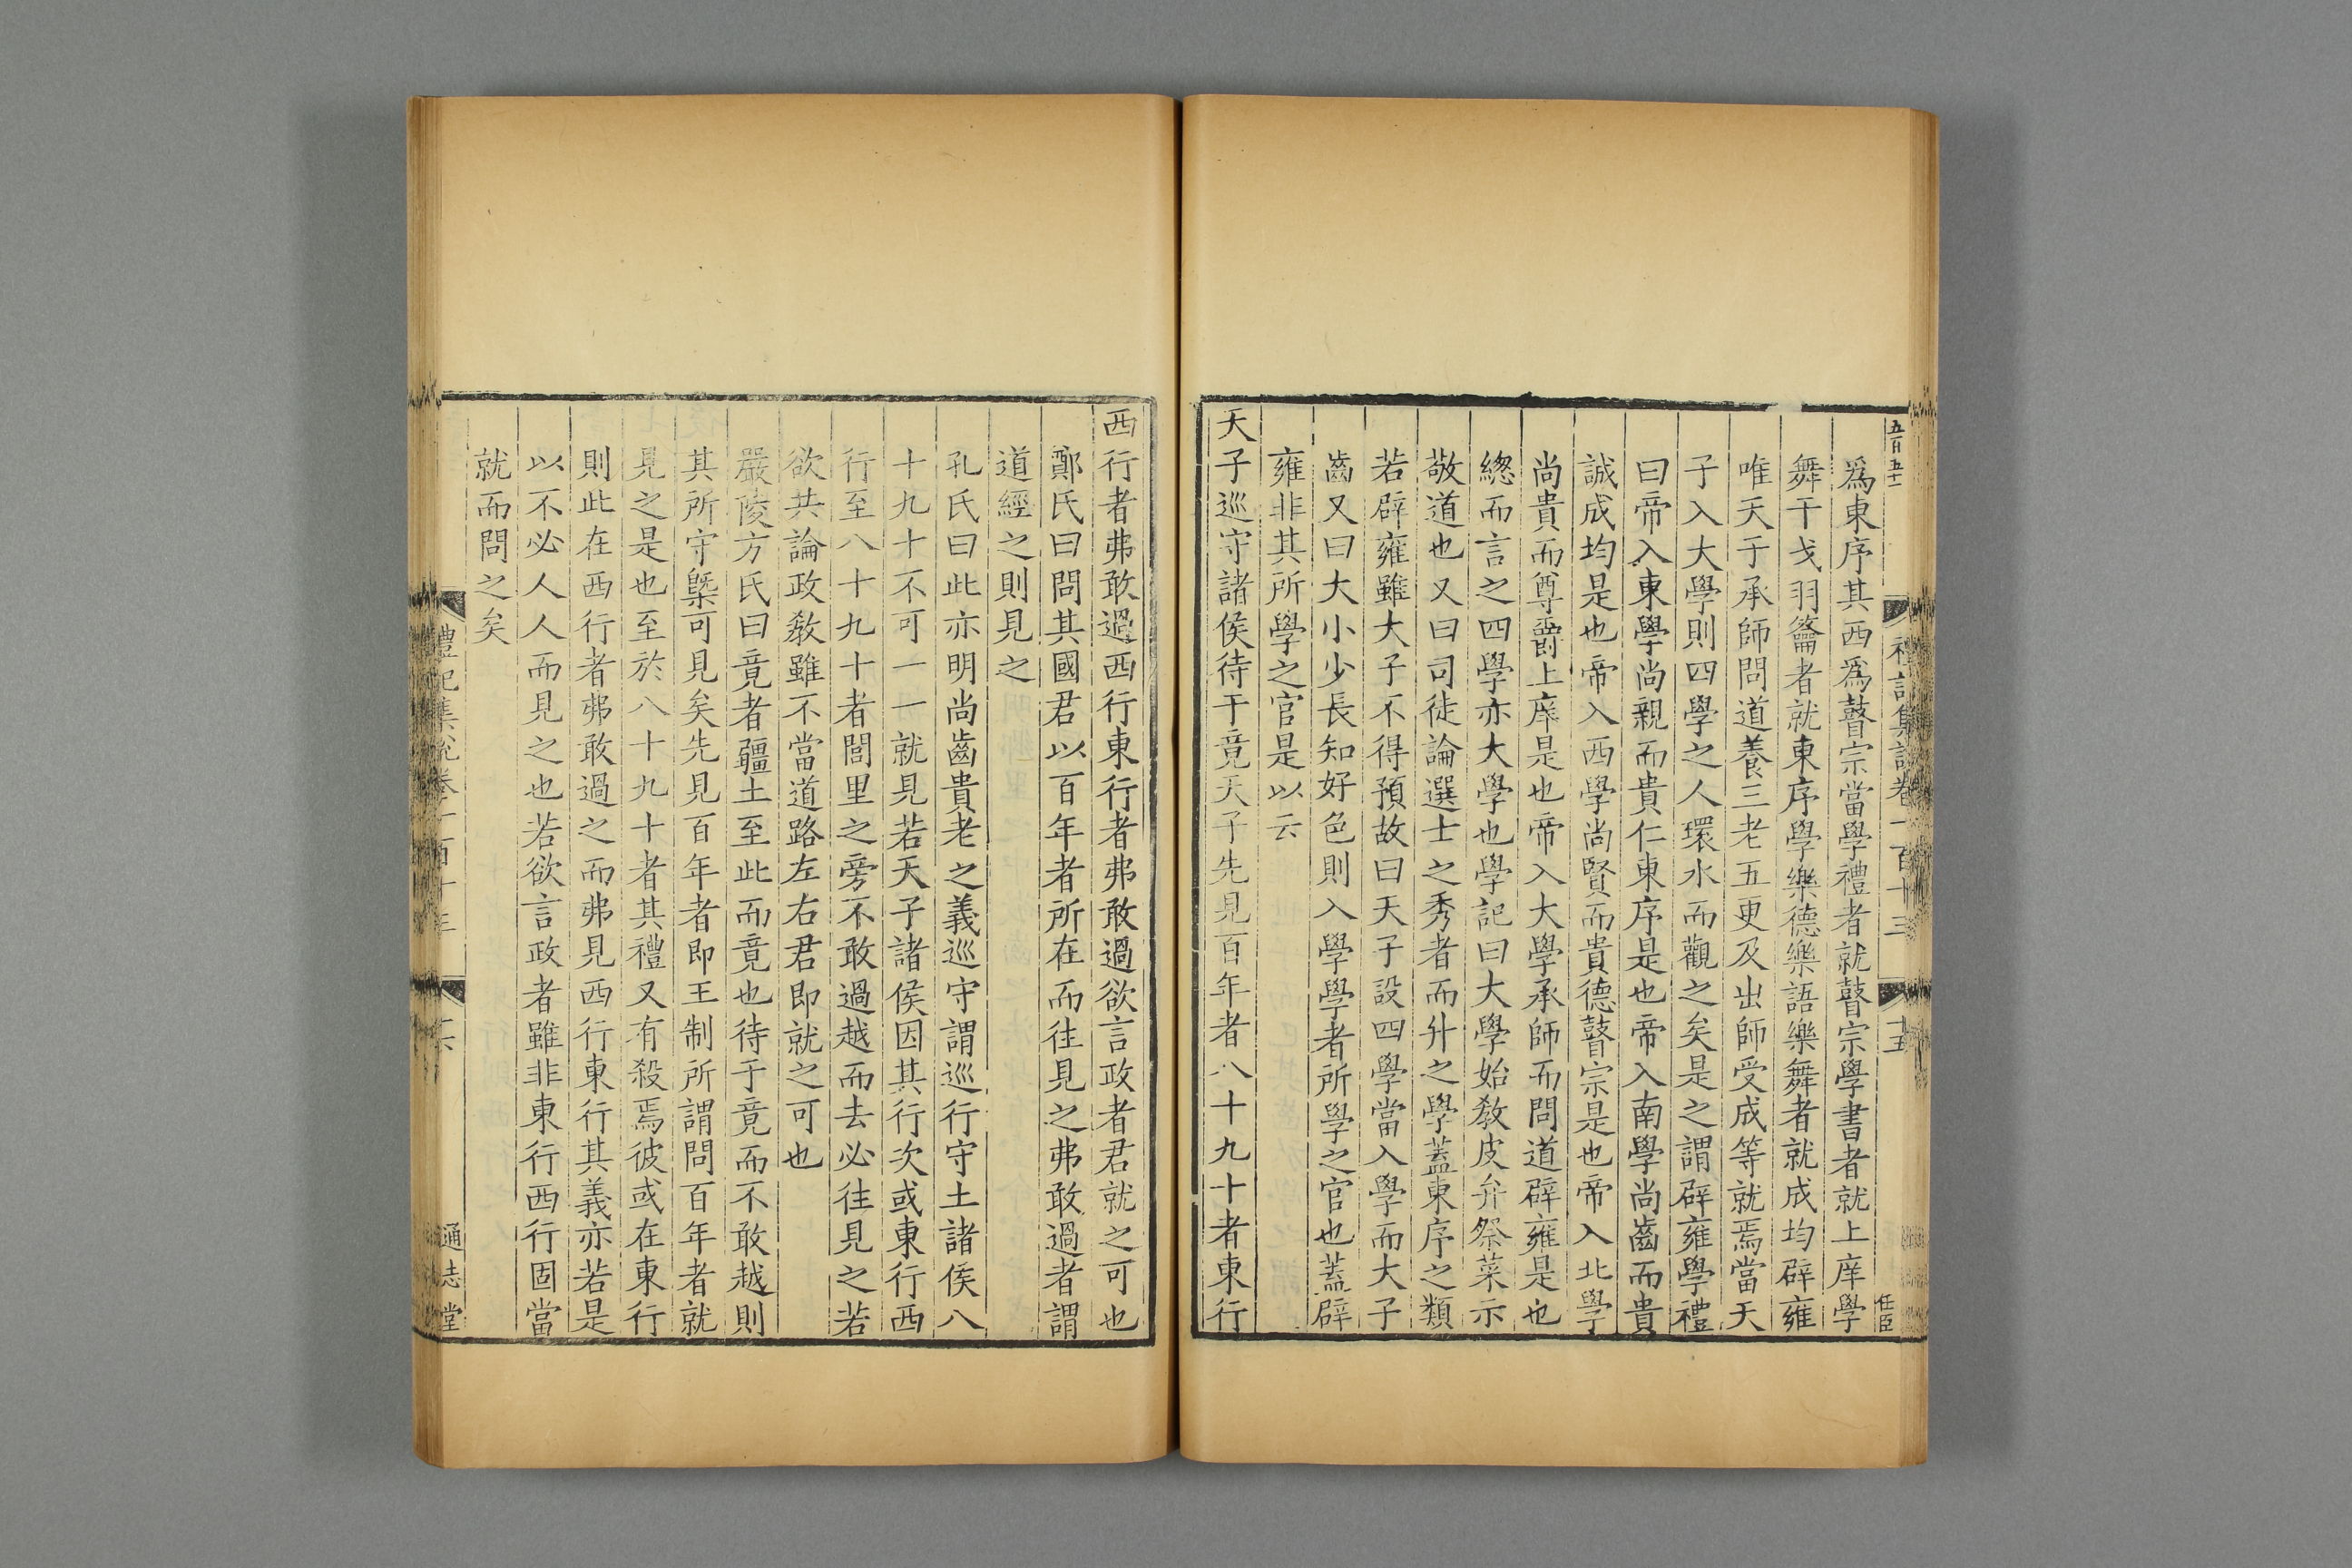 五百五十
禮記集說卷一百十三
十五
任臣
爲東序其西爲瞽宗當學禮者就瞽宗學書者就上庠學
舞干戈羽籥者就東序學樂德樂語樂舞者就成均辟雍
唯天子承師問道養三老五更及出師受成等就焉當天
子入大學則四學之人環水而觀之矣是之謂辟雍學禮
曰帝入東學尚親而貴仁東序是也帝入南學尚齒而貴
誠成均是也帝入西學尚賢而貴德瞽宗是也帝入北學
尚貴而尊爵上庠是也帝入大學承師而問道辟雍是也
緫而言之四學亦大學也學記曰大學始敎皮弁祭菜示
敬道也又曰司徒論選士之秀者而升之學蓋東序之類
若辟雍雖大子不得預故曰天子設四學當入學而大子
齒又曰大小少長知好色則入學學者所學之官也蓋辟
雍非其所學之官是以云
天子巡守諸侯待于竟天子先見百年者八十九十者東行
西行者弗敢過西行東行者弗敢過欲言政者君就之可也
鄭氏曰問其國君以百年者所在而往見之弗敢過者謂
道經之則見之
孔氏曰此亦明尚齒貴老之義巡守謂巡行守土諸侯八
十九十不可一一就見若天子諸侯因其行次或東行西
行至八十九十者閭里之旁不敢過越而去必往見之若
欲共論政敎雖不當道路左右君即就之可也
嚴陵方氏曰竟者疆土至此而竟也待于竟而不敢越則
其所守槩可見矣先見百年者即王制所謂問百年者就
見之是也至於八十九十者其禮又有殺焉彼或在東行
則此在西行者弗敢過之而弗見西行東行其義亦若是
以不必人人而見之也若欲言政者雖非東行西行固當
就而問之矣
禮記集說卷一百十三
十六
通志堂